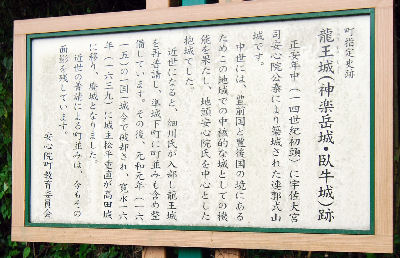 町指定史跡
龍王城(神楽岳城・臥牛城)跡
正安年中(一四世紀初頭)に宇佐大宮
司安心院公泰により築城された連郭式山
城です。
中世には、豊前国と豊後国の境にある
ためこの地域での中核的な城としての役
能を果たし、地頭安心院氏を中心とした
抱城でした。
近世になると、細川氏が入部し龍王城
を再普請し、準城下町に町並みも含め整
備しています。その後、元和元年(一六
一五)の一国一城令で破却され、寛永一六
年(一六三九)に城主松平重直が高田城
に移り、廃城となりました。
近世の普請による町並みは、今もその
面影を残しています。
安心院町教育委員会